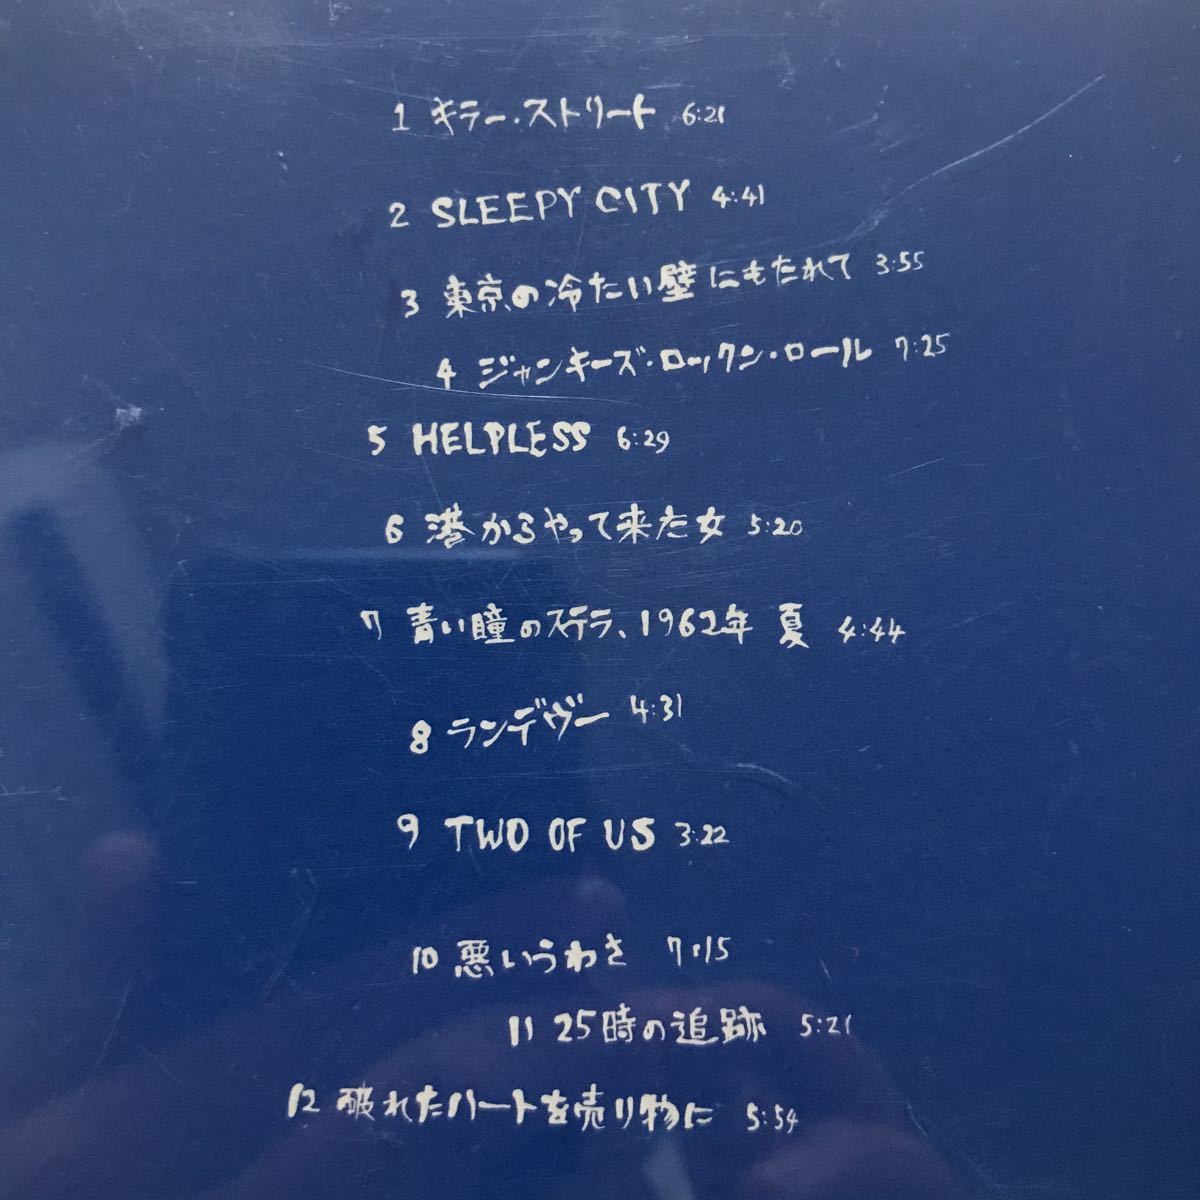 1 キラー・ストリート 6:21
2 SLEEPY CITY 4:41
3 東京の冷たい壁にもたれて 3:55
4 ジャンキーズ・ロックン・ロール 7:25
5 HELPLESS 6:29
6 港からやって来た女 5:20
7 青い瞳のステラ、1962年 夏 4:44
8 ランデヴー 4:31
9 TWO OF US 3:22
10 悪いうわさ 7:15
11 25時の追跡 5:21
12 破れたハートを売り物に 5:54